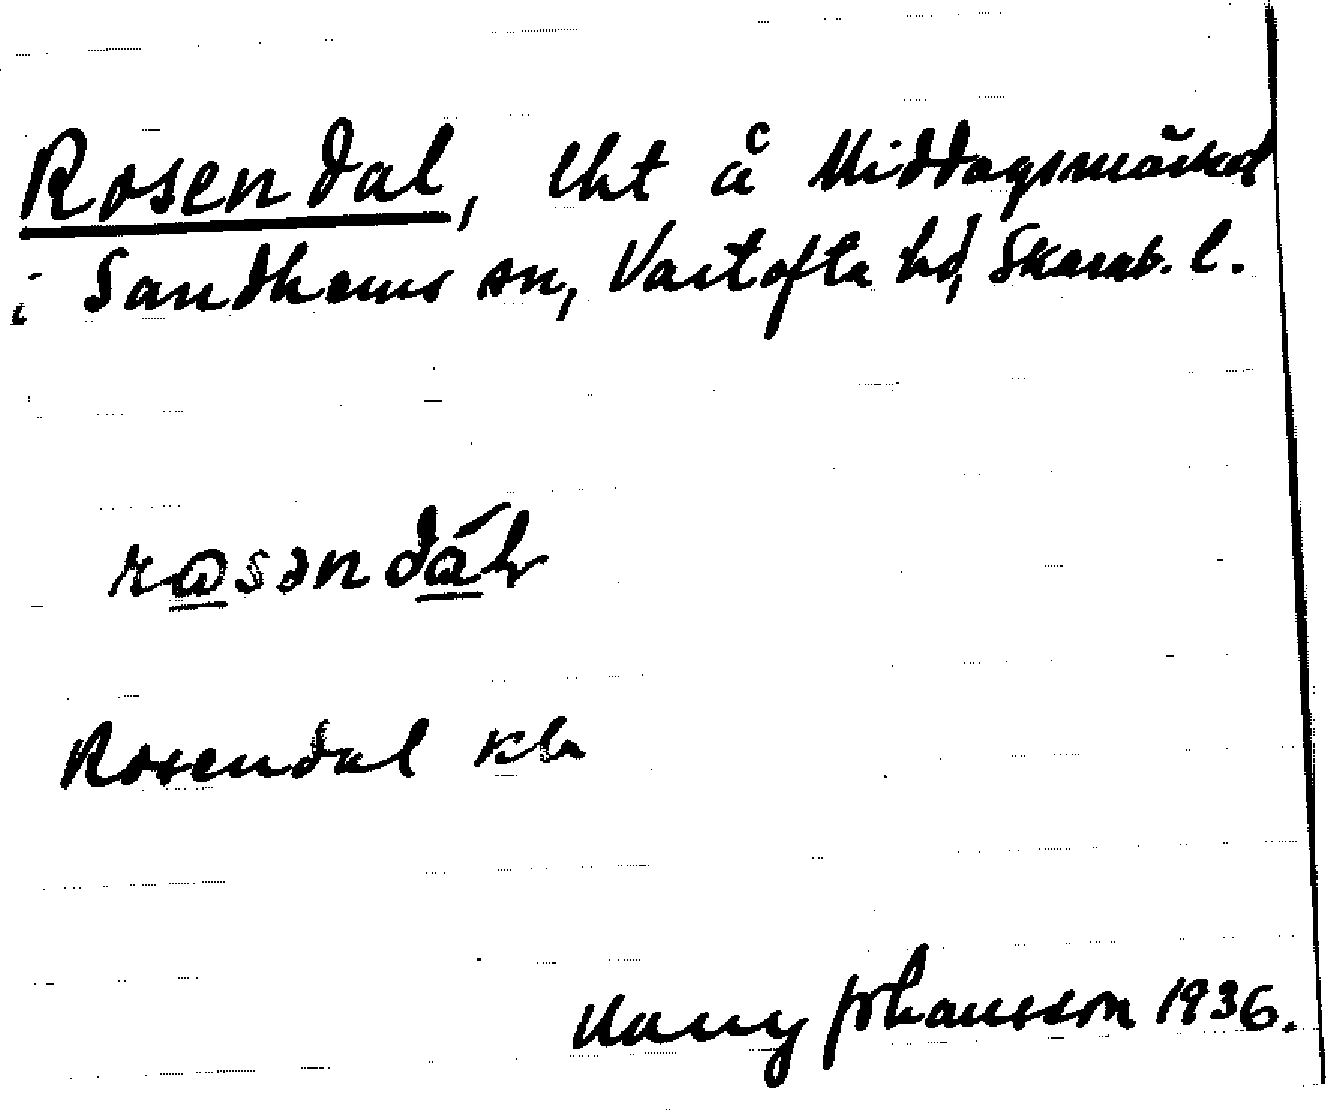 Rosendal, lht å Middagsmörkat
i Sandhems sn, Vartofta hd, Skarab. l.
rosəndál
Rosendal kla
Harry Johansson 1936.